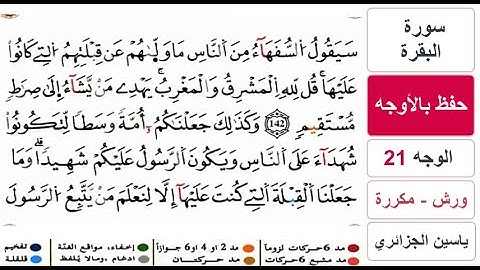 سورة
البقرة
حفظ بالأوجه
الوجه 21
ورش - مكررة
ياسين الجزائري
سَيَقُولُ السُّفَهَآءُ مِنَ النَّاسِ مَا وَلّ۪يٰهُمْ عَن قِبْلَتِهِمُ التِے كَانُواْ
عَلَيْهَاۖ قُل لِّلهِ الْمَشْرِقُ وَالْمَغْرِبُۖ يَهْدِے مَنْ يَّشَآءُ إِلَىٰ صِرَٰطٖ
مُّسْتَقِيمٖۖ 142 وَكَذَٰلِكَ جَعَلْنَٰكُمُۥٓ أُمَّةٗ وَسَطاٗ لِّتَكُونُواْ
شُهَدَآءَ عَلَى النَّاسِ وَيَكُونَ الرَّسُولُ عَلَيْكُمْ شَهِيداٗۖ وَمَا
جَعَلْنَا الْقِبْلَةَ التِے كُنتَ عَلَيْهَآ إِلَّا لِنَعْلَمَ مَنْ يَّتَّبِعُ الرَّسُولَ
مد 6 حركات لزوماً مد 2 أو 4 أو 6 جوازاً إخفاء، مواقع الغنّة تفخيم
مد مشبع 6 حركات مد حركتان ادغام، ومالا يُلفظ قلقلة